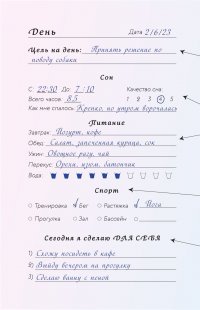 День Дата 2/6/23
Цель на день: Принять решение по
поводу собаки
Сон
С: 22:30 До: 7:10 Качество сна:
Всего часов: 8,5 1 2 3 4 5
Как мне спалось: Крепко, но утром ворочалась
Питание
Завтрак: Йогурт, кофе
Обед: Салат, запеченная курица, сок
Ужин: Овощное рагу, чай
Перекус: Орехи, изюм, батончик
Вода:
Спорт
Тренировка Бег Растяжка Йога
Прогулка Зал Бассейн
Сегодня я сделаю ДЛЯ СЕБЯ
1) Схожу посидеть в кафе
2) Выйду вечером на прогулку
3) Сделаю ванну с пеной